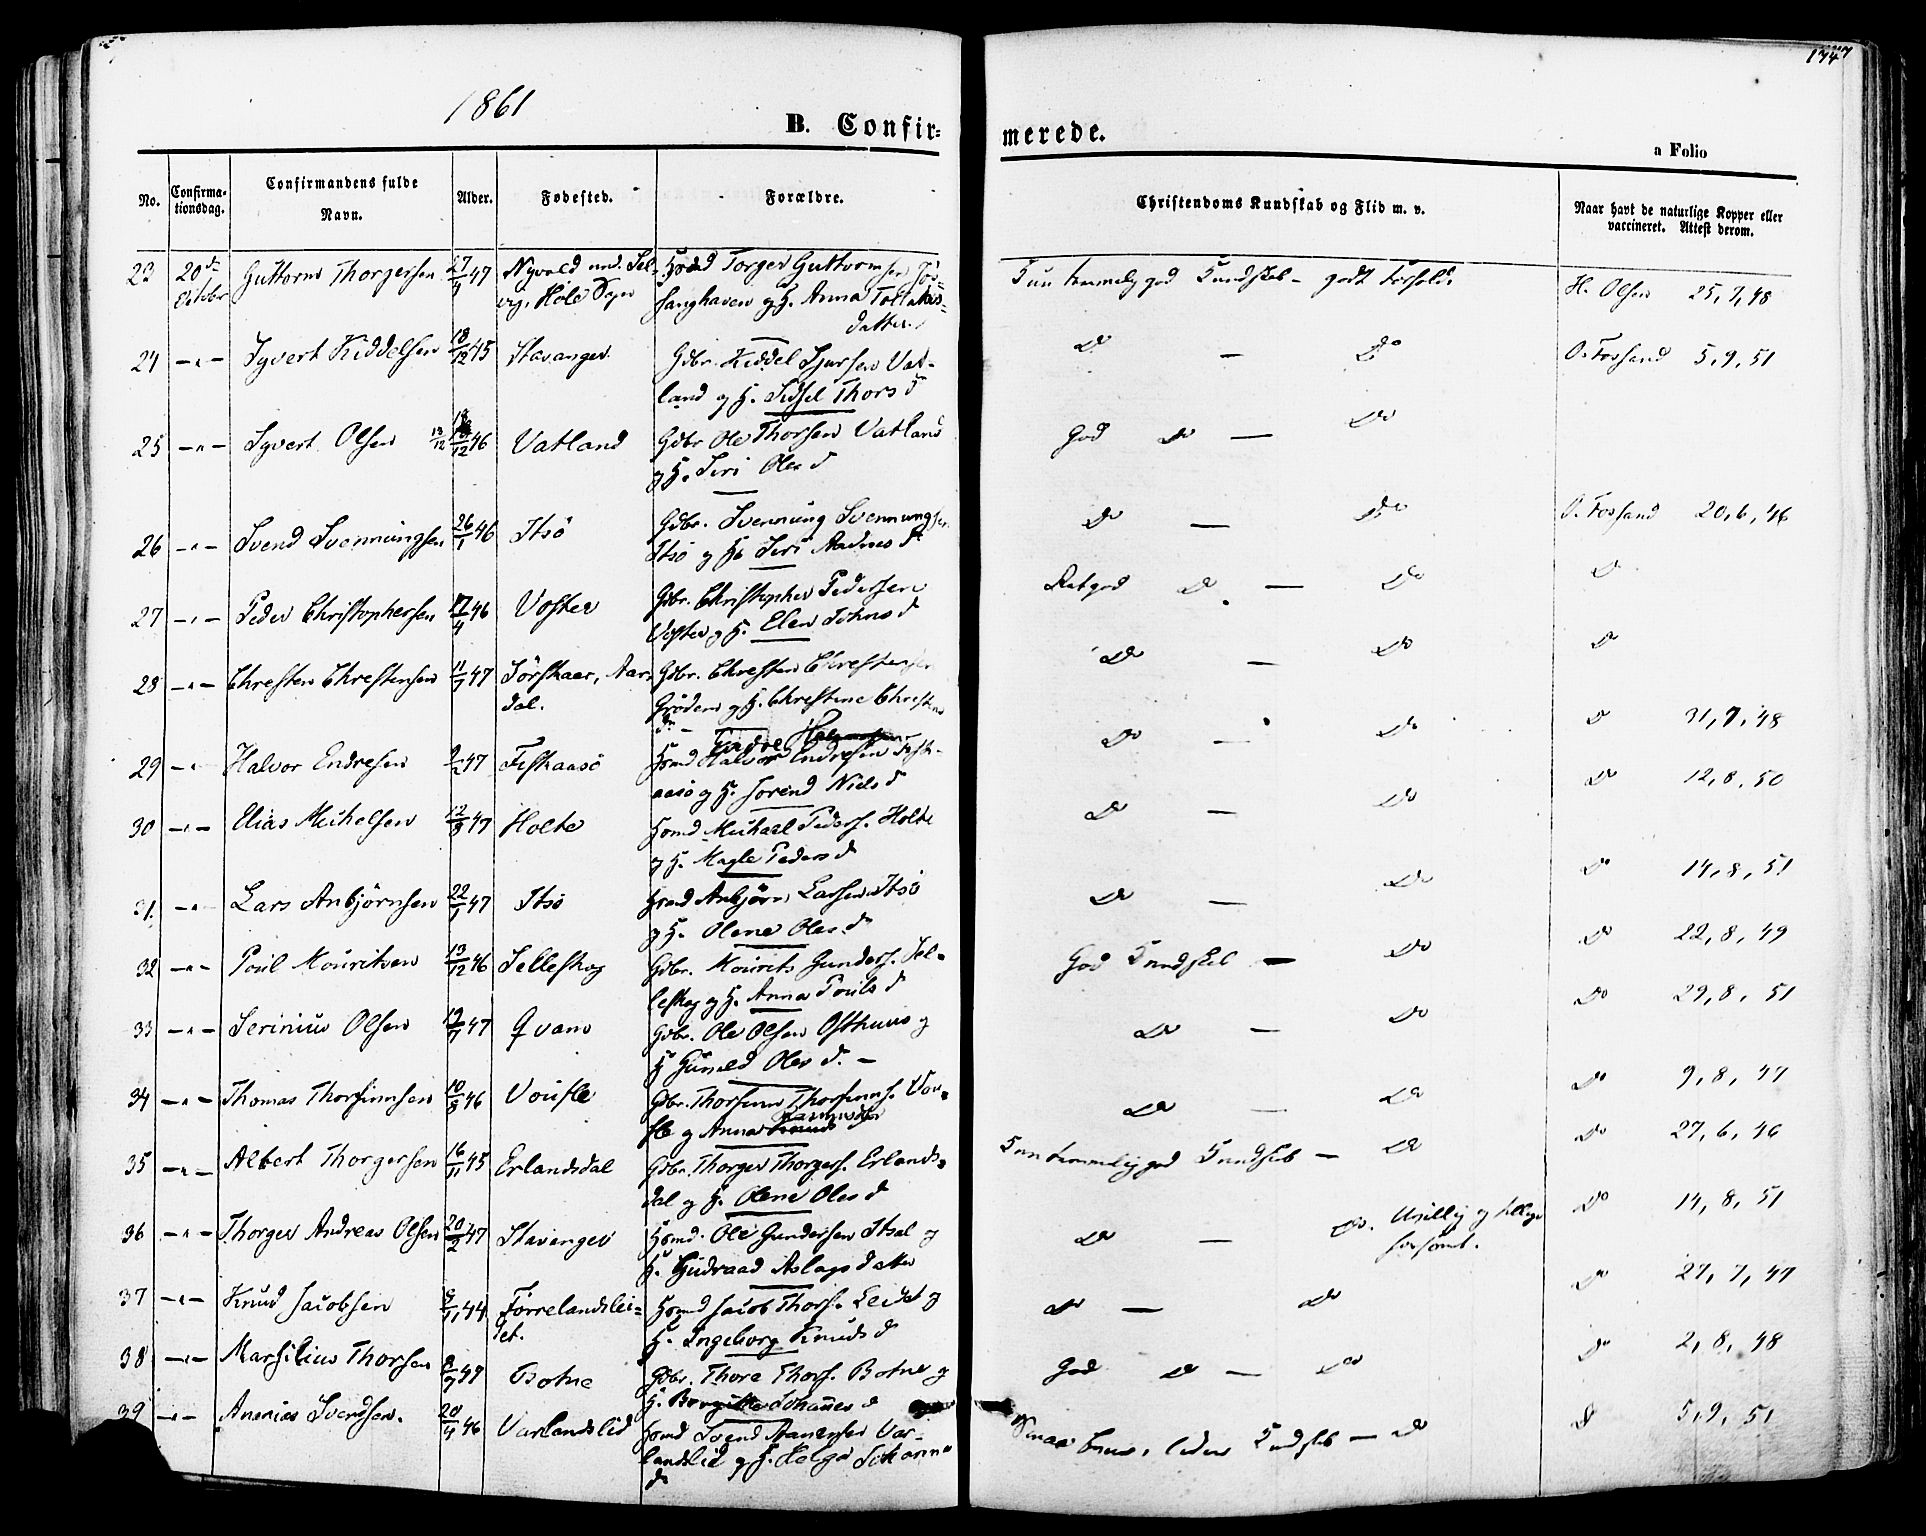 1861
B. Confirmerede.
a Folio
No. Confirmationsdag. Confirmandens fulde Navn. Alder. Fødested. Forældre. Christendoms Kundskab og Flid m. v. Naar havt de naturlige Kopper eller vaccineret. Attest derom.
23 20de Guttorm Thorgersen 27/4 47 Hole Sogn Torger Guttormsen og H. Anna datter. god Kundskab - godt Forhold. H. Olsen 25,7,48
24 -"- Syvert Kiddelsen 18/12 45 Stavanger Gdbr. Kiddel Sjursen Vatland og H. Sidsel Thors d Do - Do O. Fossand 5,9,51
25 -"- Syvert Olsen 13/12 46 Vatland Gdbr Ole Thorsen Vatland og H. Siri Oles d God Do - Do
26 -"- Svend Svennungsen 26/1 46 Itsö Gdbr. Svennung Svennungsen Itsö og H. Siri Aadnes d Do - Do O. Fossand 20,6,46
27 -"- Peder Christophersen 17/4 46 Voster Gdbr. Christopher Pedersen Voster og H. Elen Johns d Retgod Do - Do Do
28 -"- Chresten Chrestensen 11/7 47 Sörskaar, Aardal. Gdbr. Chresten Chrestensen Gröden og H. Chrestine Do - Do Do
29 -"- Halvor Endresen 2 47 Fiskaasö Hsmd Halvor Endresen Fiskaasö og H. Niels d Do - Do Do 31,7,48
30 -"- Elias Michelsen 12/8 47 Holte Hsmd Michael Peders. Holte og H. Magle Peders d Do - Do Do 12,8,50
31. -"- Lars Anbjörnsen 22/1 47 Itsö Hsmd Anbjörn Larsen Itsö og H. Olene Oles d. Do - Do Do 14,8,51
32 -"- Poul Mouritsen 13/12 46 Selleskog Gdbr. Mourits Gunders. Selleskog og H. Anna Pouls d God Kundskab - Do Do 22,8,49
33 -"- Serinius Olsen 19/7 47 Qvam Gdbr. Ole Olsen Osthuus og H Guneld Oles d. - Do - Do Do 29,8,51
34 -"- Thomas Thorsensen 10/8 46 Voufle og Anna Rasmusdtr Do - Do Do 9,8,47
35 -"- Albert Thorgersen 16/11 45 Erlandsdal Gdbr. Thorger Thorgers. Erlandsdal og H. Olene Oles d god Kundskab - Do Do 27,6,46
36 -"- Thorger Andreas Olsen 20/2 47 Stavanger Hsmd. Ole Gundersen Itsal og H. Gudraad Aslags datter Do - Do. Do 14,8,51
37 -"- Knud Jacobsen 44 Førrelandsleitet. Hsmd Jacob Thors. Leitet og H. Ingeborg Knuds d Do - Do Do 27,7,47
38 -"- Marsilius Thorsen 8/7 47 Botne Gdbr. Thore Thors. Botne og H. Borgitte Johannes d God Do - Do Do 2,8,48
39 -"- Ananias Svendsen. 20/4 46 Varlandslid Hsmd Svend Varlandslid og H. Helga Johannes d Kundskab - Do Do 5,9,51